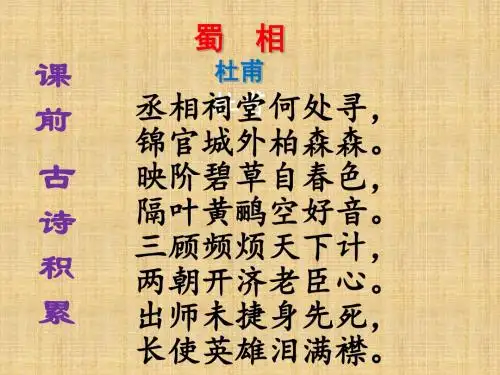 蜀 相
杜甫
课前 古诗积累
丞相祠堂何处寻，
锦官城外柏森森。
映阶碧草自春色，
隔叶黄鹂空好音。
三顾频烦天下计，
两朝开济老臣心。
出师未捷身先死，
长使英雄泪满襟。